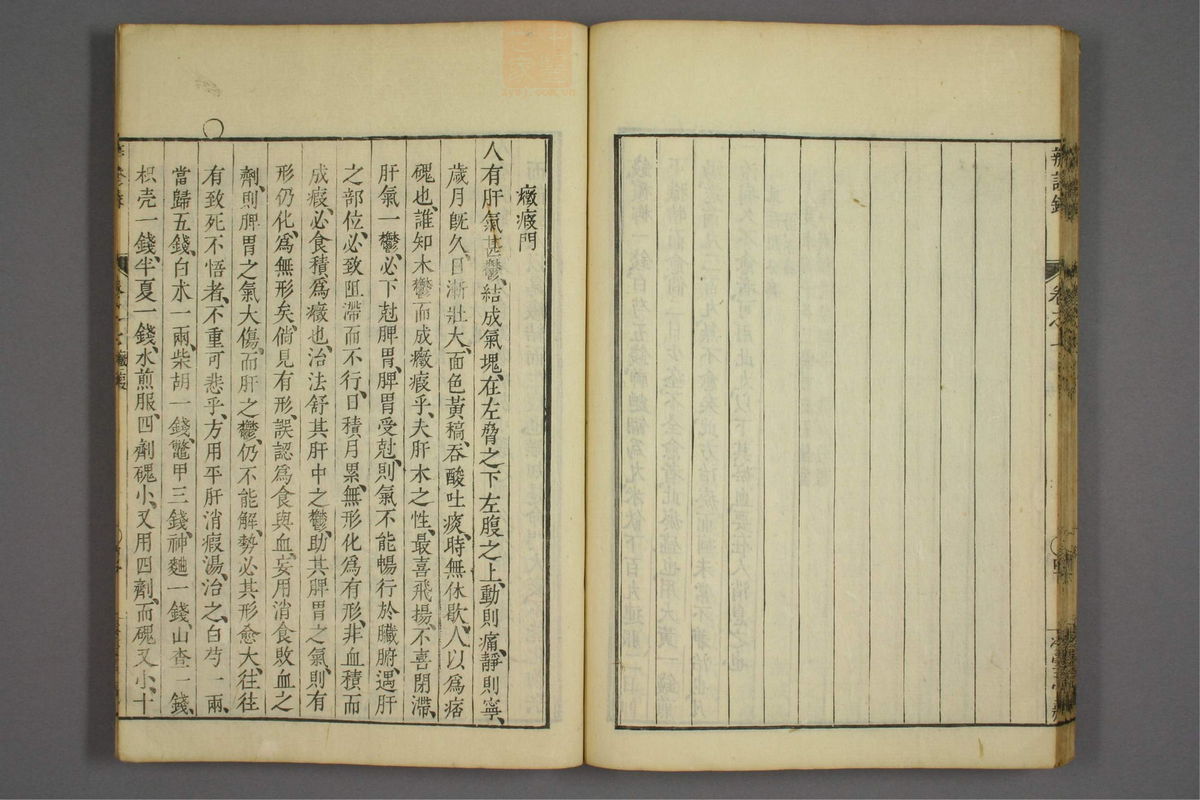 辨證錄
卷之七
癥瘕門
人有肝氣甚鬱、結成氣塊、在左脅之下左腹之上、動則痛、靜則寧、
歲月既久、日漸壯大、面色黃稿、吞酸吐痰、時無休歇、人以爲痞
磈也、誰知木鬱而成癥瘕乎、夫肝木之性、最喜飛揚、不喜閉滯、
肝氣一鬱、必下尅脾胃、脾胃受尅、則氣不能暢行於臟腑、遇肝
之部位、必致阻滯而不行、日積月累、無形化爲有形、非血積而
成瘕、必食積爲癥也、治法舒其肝中之鬱、助其脾胃之氣、則有
形仍化爲無形矣、倘見有形、誤認爲食與血、妄用消食敗血之
劑、則脾胃之氣大傷、而肝之鬱仍不能解、勢必其形愈大、往往
有致死不悟者、不重可悲乎、方用平肝消瘕湯、治之、白芍一兩、
當歸五錢、白朮一兩、柴胡一錢、鱉甲三錢、神麯一錢、山查一錢、
枳壳一錢、半夏一錢、水煎服、四劑磈小、又用四劑、而磈又小、十